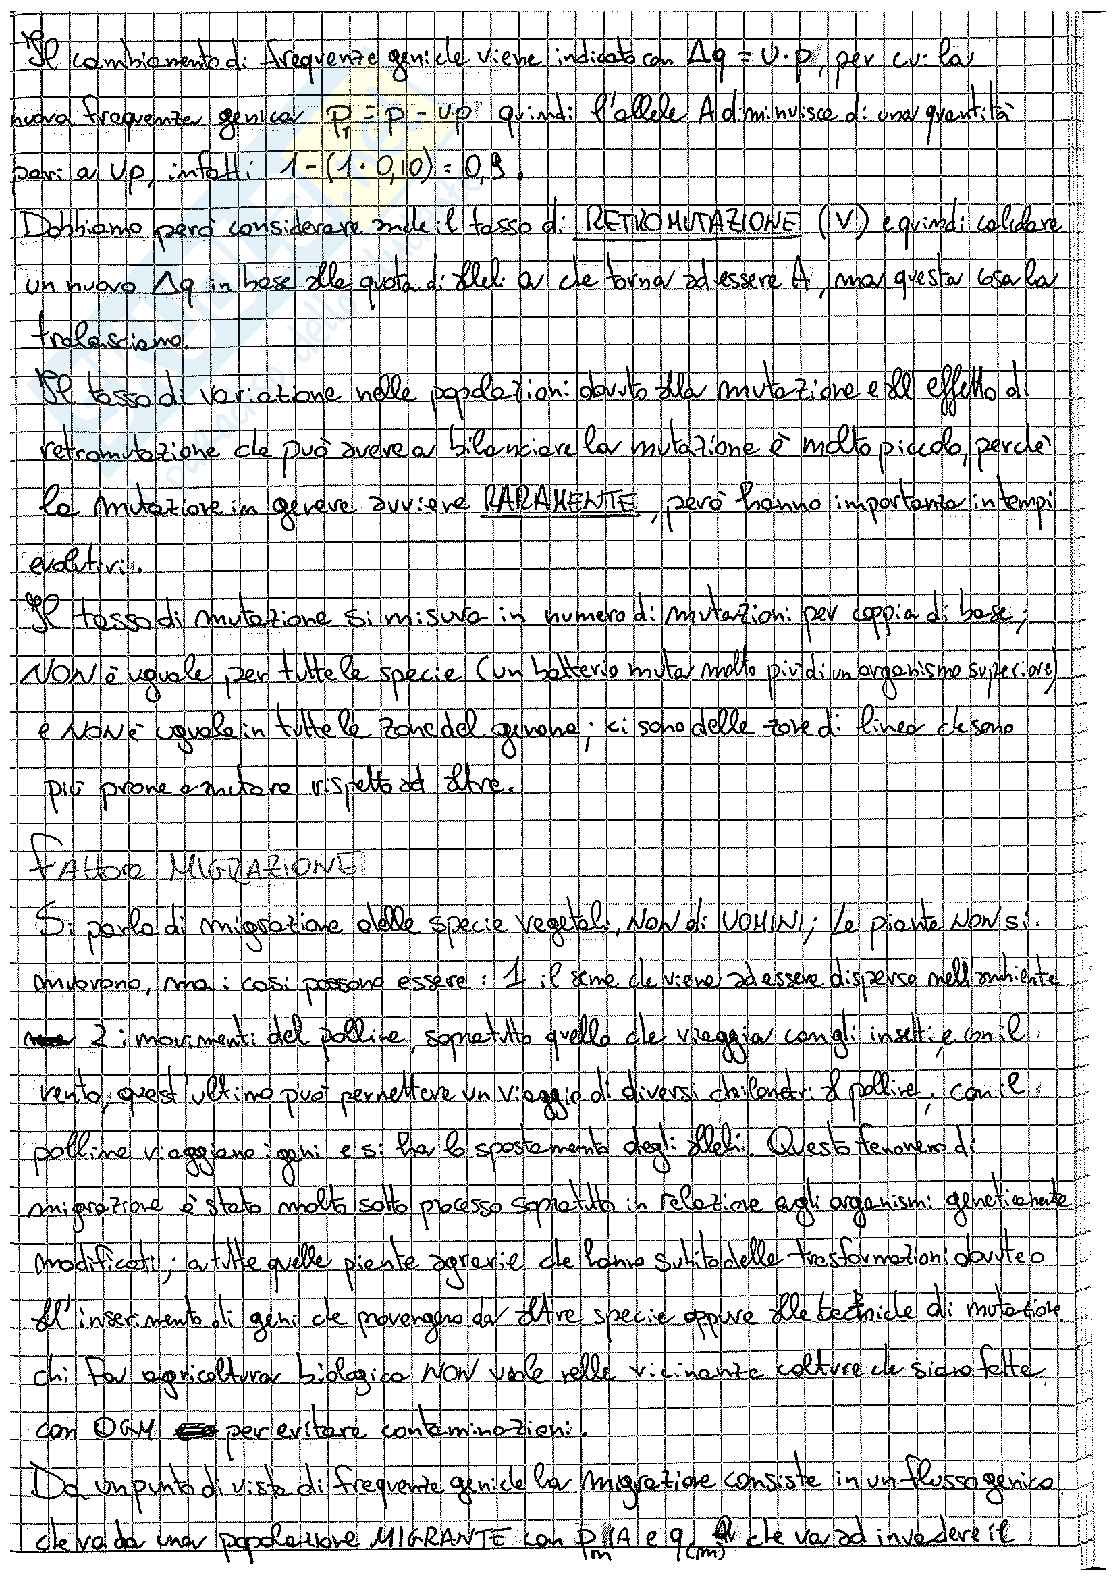 Il cambiamento di frequenze geniche viene indicato con Δq = u·p, per cui la
nuova frequenza genica p₁ = p - up quindi l'allele A diminuisce di una quantità
pari a up, infatti 1-(1·0,10) = 0,9.
Dobbiamo però considerare anche il tasso di RETROMUTAZIONE (V) e quindi calcolare
un nuovo Δq in base alla quota di alleli a che torna ad essere A, ma questa cosa la
tralasciamo.
Il tasso di variazione nelle popolazioni dovuto alla mutazione e all'effetto di
retromutazione che può avere a bilanciare la mutazione è molto piccolo, perchè
la mutazione in genere avviene RARAMENTE, però hanno importanza in tempi
evolutivi.
Il tasso di mutazione si misura in numero di mutazioni per coppia di base;
NON è uguale per tutte le specie (un batterio muta molto più di un organismo superiore)
e NON è uguale in tutte le zone del genoma; ci sono delle zone di linea che sono
più prone a mutare rispetto ad altre.
Fattore MIGRAZIONE
Si parla di migrazione delle specie vegetali, NON di UOMINI; Le piante NON si
muovono, ma i casi possono essere: 1 il seme che viene ad essere disperso nell'ambiente
2 i movimenti del polline, sopratutto quello che viaggia con gli insetti e con il
vento, quest'ultimo può permettere un viaggio di diversi chilometri al polline, con il
polline viaggiano i geni e si ha lo spostamento degli alleli. Questo fenomeno di
migrazione è stato molto sotto processo sopratutto in relazione agli organismi geneticamente
modificati; a tutte quelle piante agrarie che hanno subito delle trasformazioni dovute o
all'inserimento di geni che provengono da altre specie oppure alle tecniche di mutazione.
chi fa agricoltura biologica NON vuole nelle vicinanze colture che siano fatte
con OGM per evitare contaminazioni.
Da un punto di vista di frequenze geniche la migrazione consiste in un flusso genico
che va da una popolazione MIGRANTE con pm A e q(m) a che va ad invadere il